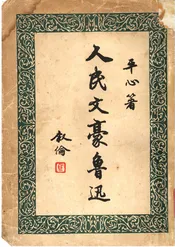 平心著
人民文豪魯迅
叙倫